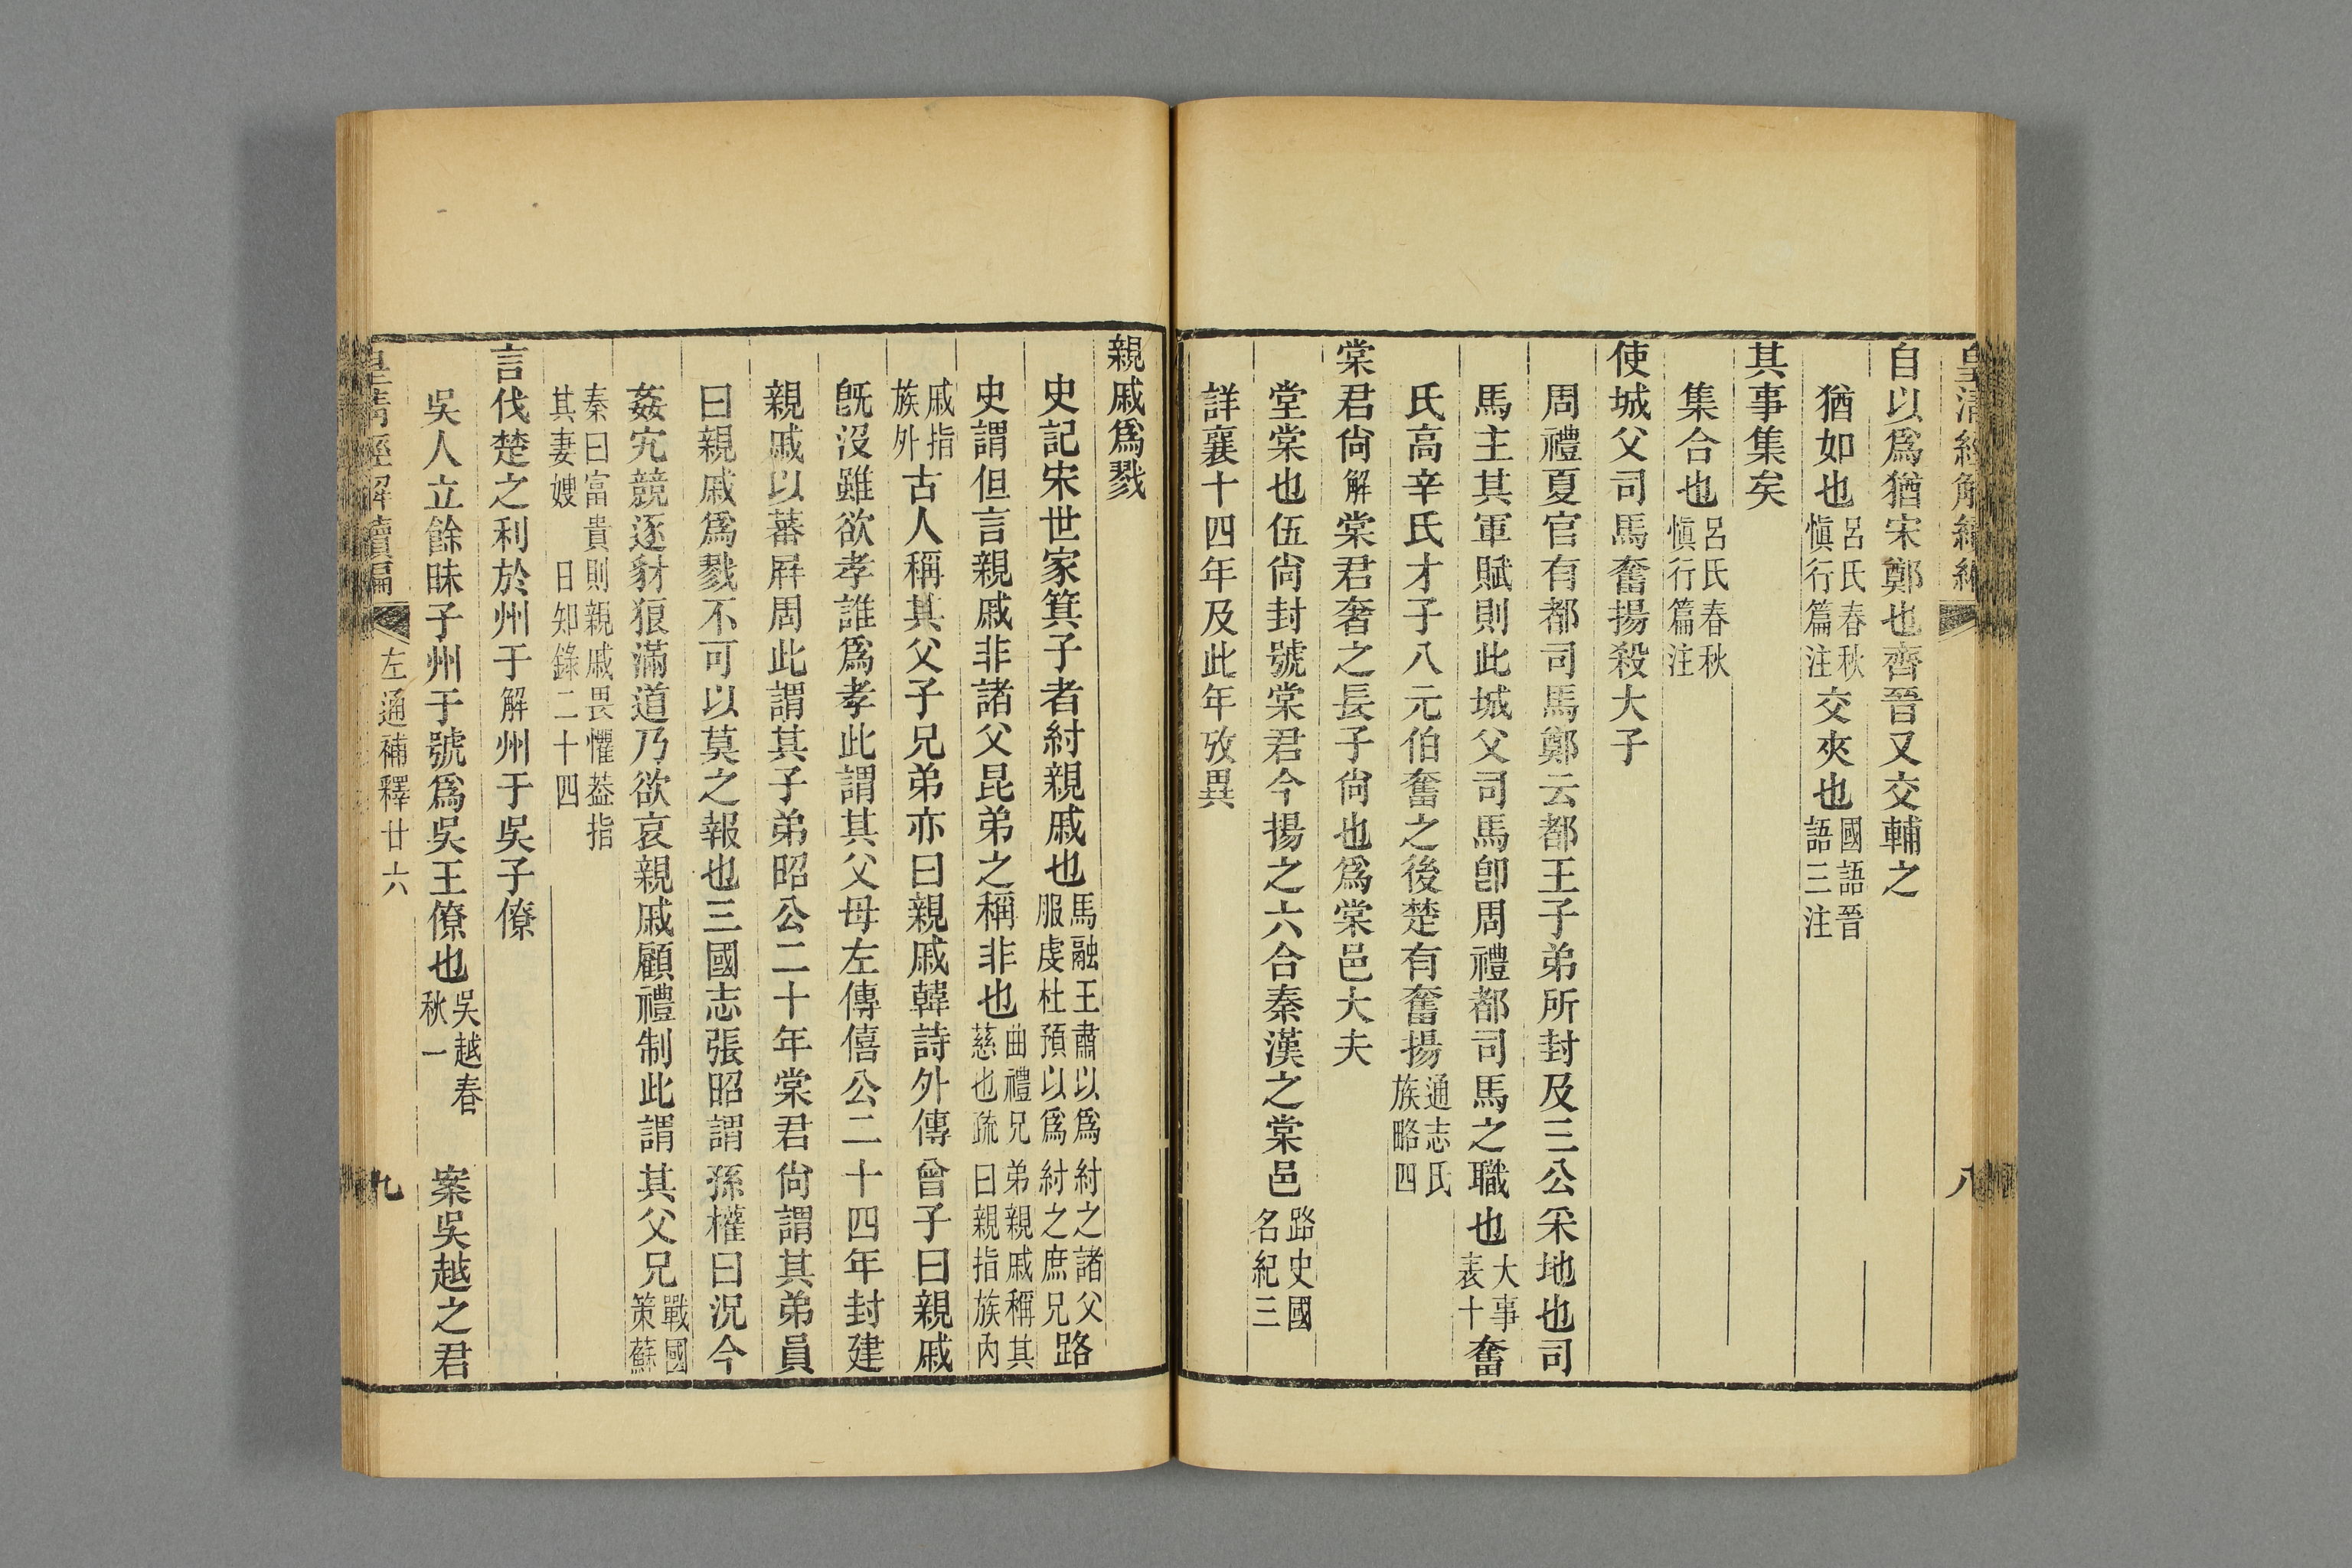 皇清經解續編 八
自以爲猶宋鄭也齊晉又交輔之
猶如也呂氏春秋愼行篇注交夾也國語晉語三注
其事集矣
集合也呂氏春秋愼行篇注
使城父司馬奮揚殺大子
周禮夏官有都司馬鄭云都王子弟所封及三公采地也司
馬主其軍賦則此城父司馬卽周禮都司馬之職也大事表十奮
氏高辛氏才子八元伯奮之後楚有奮揚通志氏族略四
棠君尙解棠君奢之長子尙也爲棠邑大夫
堂棠也伍尙封號棠君今揚之六合秦漢之棠邑路史國名紀三
詳襄十四年及此年攷異
親戚爲戮
史記宋世家箕子者紂親戚也馬融王肅以爲紂之諸父服虔杜預以爲紂之庶兄路
史謂但言親戚非諸父昆弟之稱非也曲禮兄弟親戚稱其慈也疏曰親指族內
戚指族外古人稱其父子兄弟亦曰親戚韓詩外傳曾子曰親戚
旣沒雖欲孝誰爲孝此謂其父母左傳僖公二十四年封建
親戚以蕃屛周此謂其子弟昭公二十年棠君尙謂其弟員
曰親戚爲戮不可以莫之報也三國志張昭謂孫權曰況今
姦宄競逐豺狼滿道乃欲哀親戚顧禮制此謂其父兄戰國策蘇
秦曰富貴則親戚畏懼葢指其妻嫂 日知錄二十四
言伐楚之利於州于解州于吳子僚
吳人立餘昧子州于號爲吳王僚也吳越春秋一 案吳越之君
皇清經解續編 左通補釋廿六 九